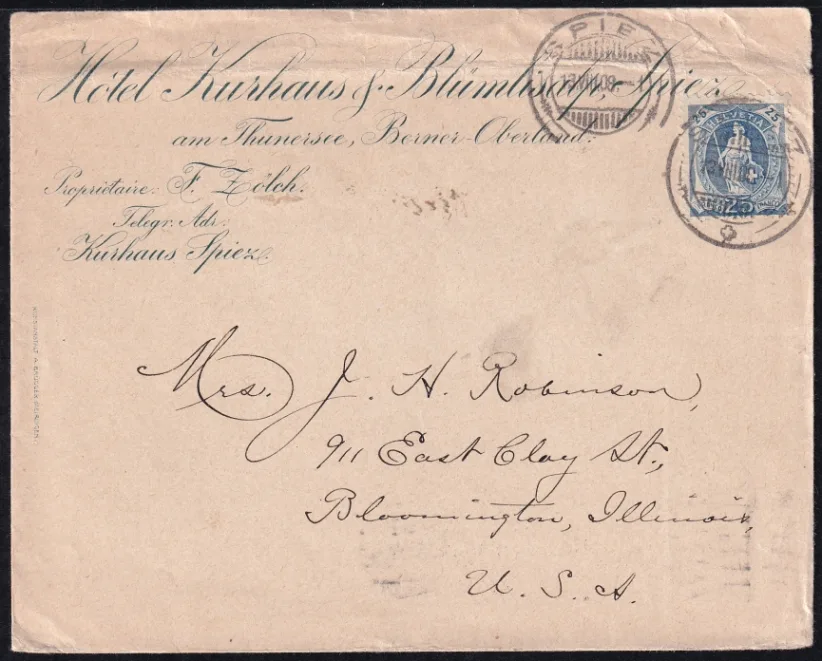 Hôtel Kurhaus & Blümlisalp, Spiez
am Thunersee, Berner-Oberland.
Propriétaire: F. Zölch.
Telegr. Adr.
Kurhaus Spiez.
SPIEZ
13.VII.09.
25 HELVETIA 25
25
Mrs. J. H. Robinson,
911 East Clay St.,
Bloomington, Illinois,
U. S. A.